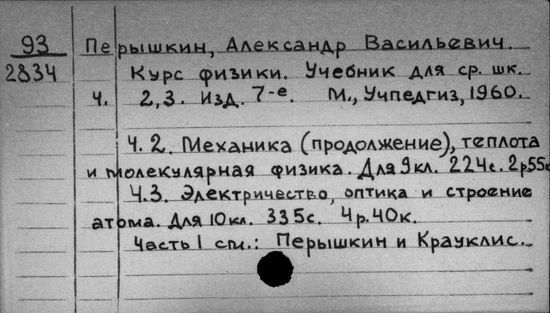 93 Перышкин, Александр Васильевич.
2834 Курс физики. Учебник для ср. шк.
Ч. 2,3. Изд. 7-е. М., Учпедгиз, 1960.
Ч. 2. Механика (продолжение), теплота
и молекулярная физика. Для 9 кл. 224с. 2р55к
Ч.3. Электричество, оптика и строение
атома. Для 10 кл. 335с. 4р.40к.
Часть 1 см.: Перышкин и Крауклис.